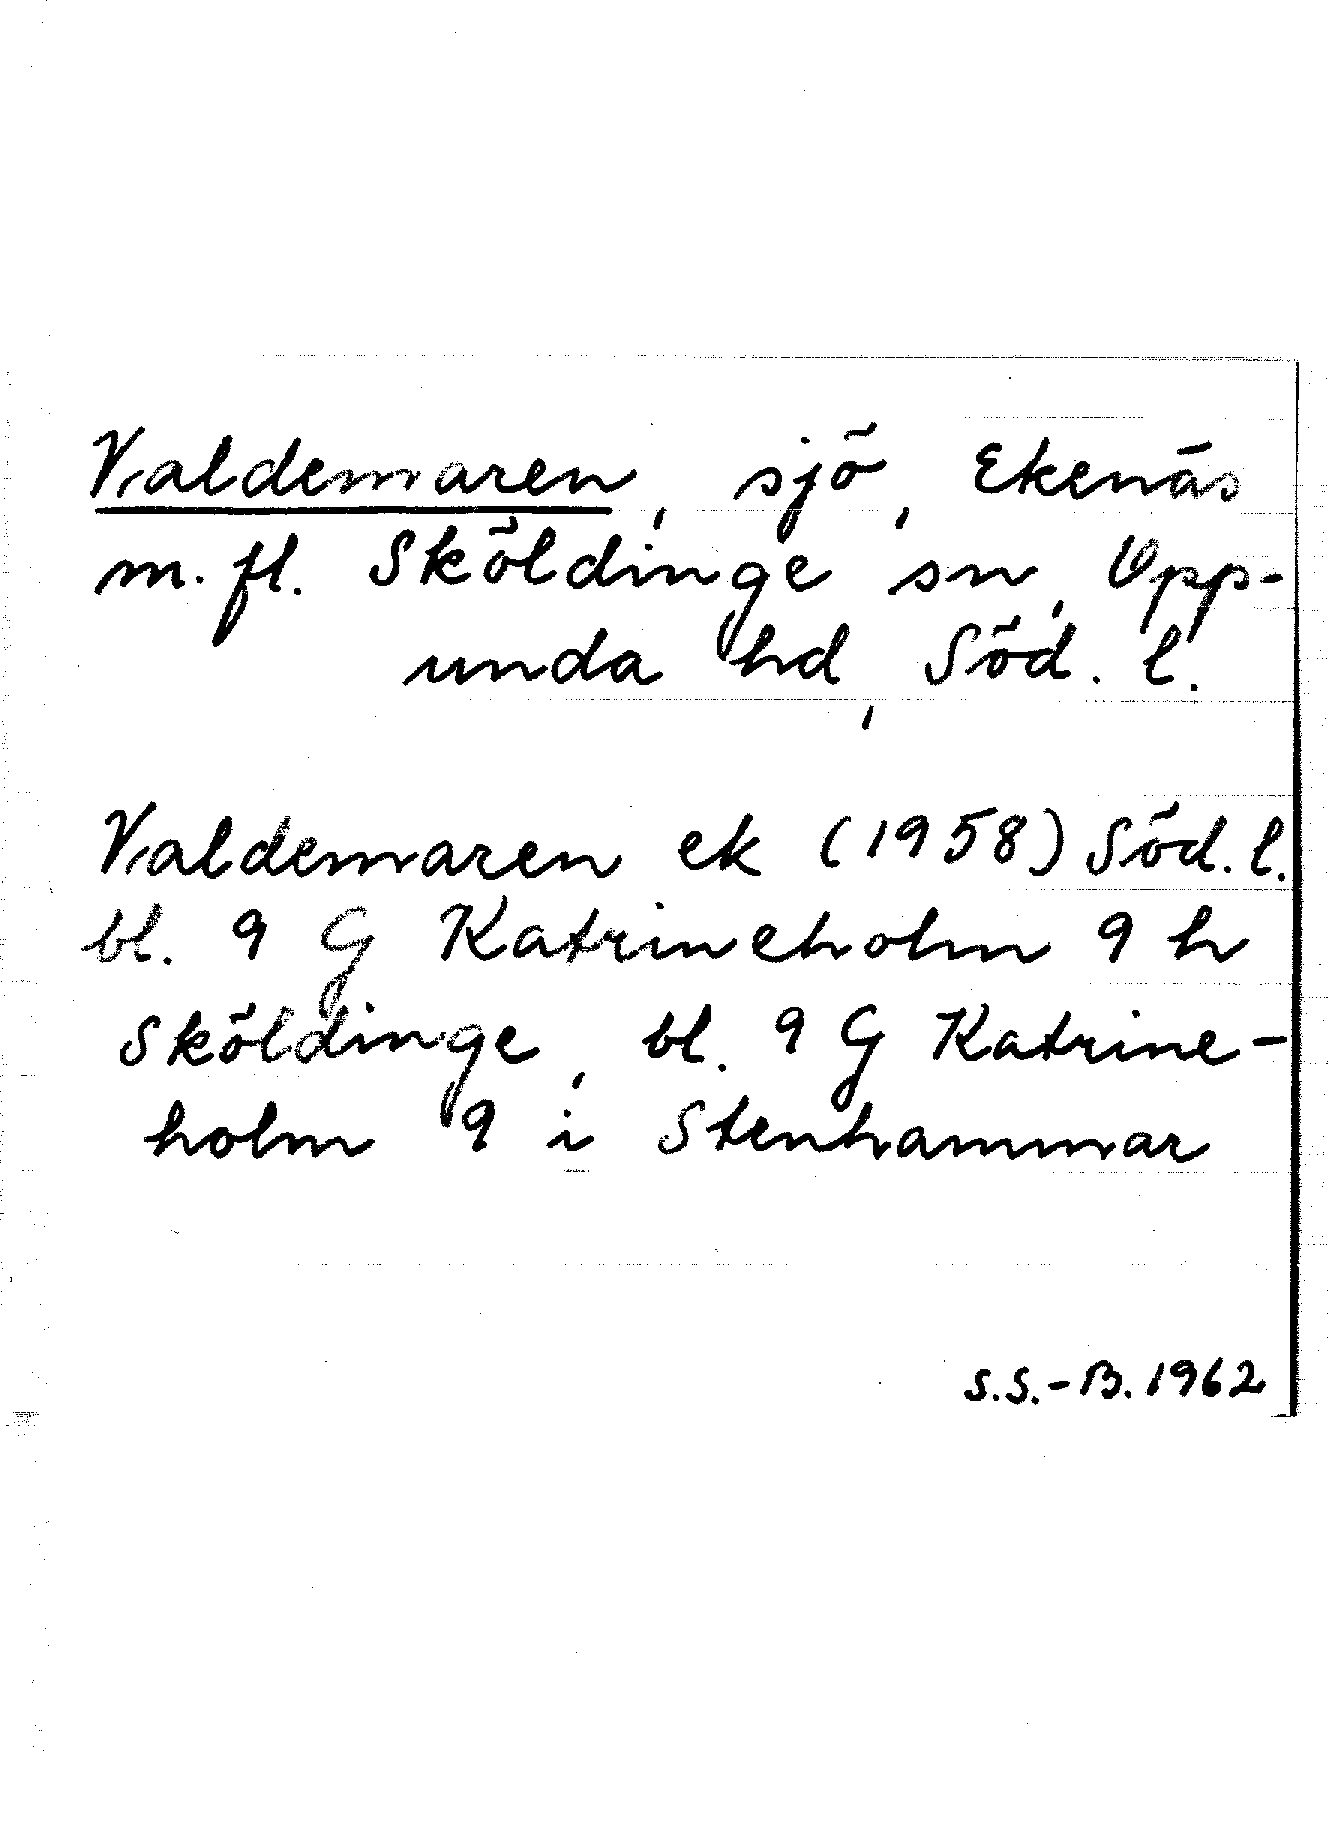 Valdemaren, sjö, Ekenäs
m. fl. Sköldinge sn, Opp-
unda hd, Söd. l.
Valdemaren ek (1958) Söd. l.
bl. 9 G Katrineholm 9 h
Sköldinge, bl. 9 G Katrine-
holm 9 i Stenhammar
S.S.-B. 1962